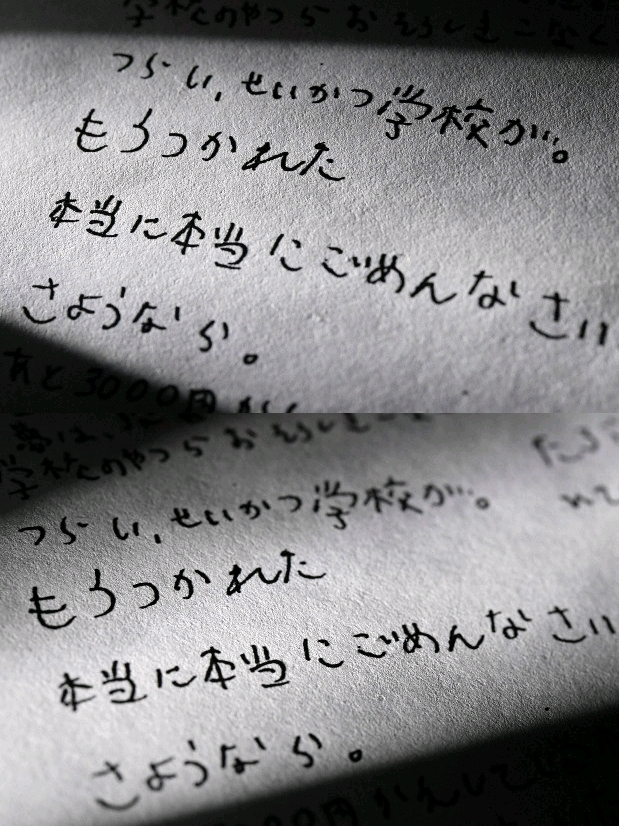 学校のやつらおそろしをこなく
つらい、せいかつ学校が。
もうつかれた
本当に本当にごめんなさい
さようなら。
あと3000円かく
学校のやつらおそろしを
つらい、せいかつ学校が。
もうつかれた
本当に本当にごめんなさい
さようなら。
00円かんして